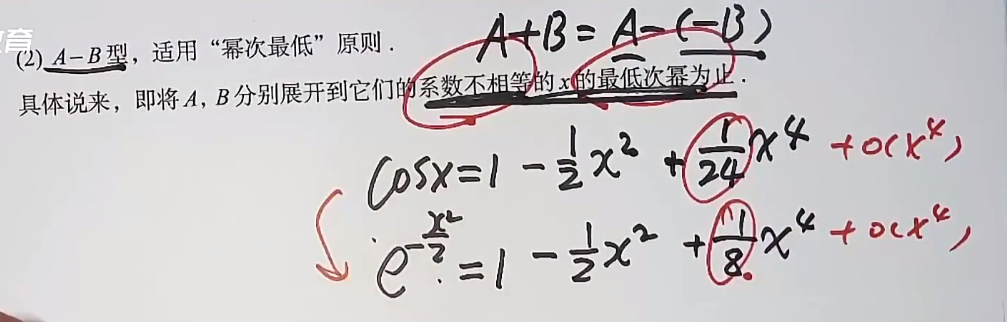 育
A+B=A-(-B)
(2) A-B型，适用“幂次最低”原则.
具体说来，即将A, B分别展开到它们的系数不相等的x的最低次幂为止.
cosx=1-\frac{1}{2}x^2+\frac{1}{24}x^4+o(x^4)
e^{-\frac{x^2}{2}}=1-\frac{1}{2}x^2+\frac{1}{8}x^4+o(x^4)